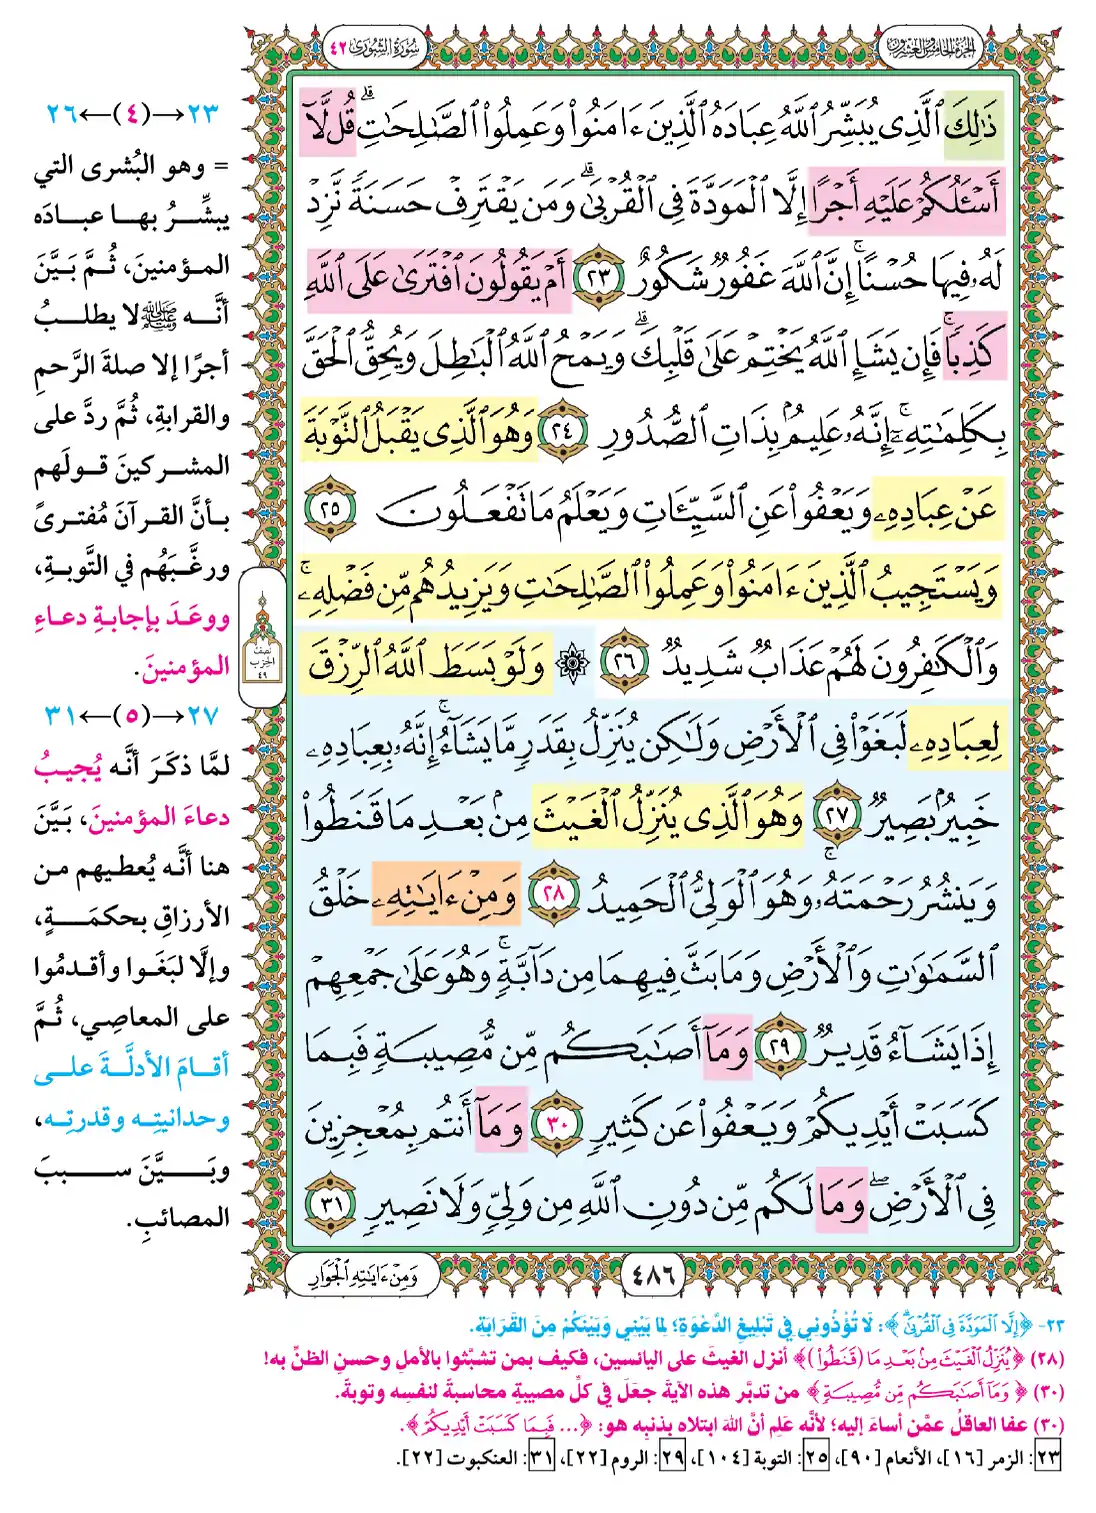 الجزء الخامس والعشرون
سورة الشورى ٤٢
ذَٰلِكَ ٱلَّذِى يُبَشِّرُ ٱللَّهُ عِبَادَهُ ٱلَّذِينَ ءَامَنُوا۟ وَعَمِلُوا۟ ٱلصَّٰلِحَٰتِ ۗ قُل لَّآ
أَسْـَٔلُكُمْ عَلَيْهِ أَجْرًا إِلَّا ٱلْمَوَدَّةَ فِى ٱلْقُرْبَىٰ ۗ وَمَن يَقْتَرِفْ حَسَنَةً نَّزِدْ
لَهُۥ فِيهَا حُسْنًا ۚ إِنَّ ٱللَّهَ غَفُورٌ شَكُورٌ ٢٣ أَمْ يَقُولُونَ ٱفْتَرَىٰ عَلَى ٱللَّهِ
كَذِبًا ۖ فَإِن يَشَإِ ٱللَّهُ يَخْتِمْ عَلَىٰ قَلْبِكَ ۗ وَيَمْحُ ٱللَّهُ ٱلْبَٰطِلَ وَيُحِقُّ ٱلْحَقَّ
بِكَلِمَٰتِهِۦٓ ۚ إِنَّهُۥ عَلِيمٌۢ بِذَاتِ ٱلصُّدُورِ ٢٤ وَهُوَ ٱلَّذِى يَقْبَلُ ٱلتَّوْبَةَ
عَنْ عِبَادِهِۦ وَيَعْفُوا۟ عَنِ ٱلسَّيِّـَٔاتِ وَيَعْلَمُ مَا تَفْعَلُونَ ٢٥
وَيَسْتَجِيبُ ٱلَّذِينَ ءَامَنُوا۟ وَعَمِلُوا۟ ٱلصَّٰلِحَٰتِ وَيَزِيدُهُم مِّن فَضْلِهِۦ ۚ
وَٱلْكَٰفِرُونَ لَهُمْ عَذَابٌ شَدِيدٌ ٢٦ ۞ وَلَوْ بَسَطَ ٱللَّهُ ٱلرِّزْقَ
لِعِبَادِهِۦ لَبَغَوْا۟ فِى ٱلْأَرْضِ وَلَٰكِن يُنَزِّلُ بِقَدَرٍ مَّا يَشَآءُ ۚ إِنَّهُۥ بِعِبَادِهِۦ
خَبِيرٌۢ بَصِيرٌ ٢٧ وَهُوَ ٱلَّذِى يُنَزِّلُ ٱلْغَيْثَ مِنۢ بَعْدِ مَا قَنَطُوا۟
وَيَنشُرُ رَحْمَتَهُۥ ۚ وَهُوَ ٱلْوَلِىُّ ٱلْحَمِيدُ ٢٨ وَمِنْ ءَايَٰتِهِۦ خَلْقُ
ٱلسَّمَٰوَٰتِ وَٱلْأَرْضِ وَمَا بَثَّ فِيهِمَا مِن دَآبَّةٍ ۚ وَهُوَ عَلَىٰ جَمْعِهِمْ
إِذَا يَشَآءُ قَدِيرٌ ٢٩ وَمَآ أَصَٰبَكُم مِّن مُّصِيبَةٍ فَبِمَا
كَسَبَتْ أَيْدِيكُمْ وَيَعْفُوا۟ عَن كَثِيرٍ ٣٠ وَمَآ أَنتُم بِمُعْجِزِينَ
فِى ٱلْأَرْضِ ۖ وَمَا لَكُم مِّن دُونِ ٱللَّهِ مِن وَلِىٍّ وَلَا نَصِيرٍ ٣١
نصف
الحزب
٤٩
٤٨٦
وَمِنْ ءَايَٰتِهِ ٱلْجَوَارِ
٢٣→(٤)←٢٦
= وهو البُشرى التي
يبشِّرُ بها عبادَه
المؤمنينَ، ثُمَّ بَيَّنَ
أنَّه ﷺ لا يطلبُ
أجرًا إلا صلةَ الرَّحمِ
والقرابةِ، ثُمَّ ردَّ على
المشركينَ قولَهم
بأنَّ القرآنَ مُفترىً
ورغَّبَهُم في التَّوبةِ،
ووعَدَ بإجابةِ دعاءِ
المؤمنينَ.
٢٧→(٥)←٣١
لمَّا ذكَرَ أنَّه يُجيبُ
دعاءَ المؤمنينَ، بَيَّنَ
هنا أنَّه يُعطيهم من
الأرزاقِ بحكمَةٍ،
وإلَّا لبَغَوا وأقدمُوا
على المعاصِي، ثُمَّ
أقامَ الأدلَّةَ على
وحدانيتِه وقدرتِه،
وبَيَّنَ سببَ
المصائبِ.
٢٣- ﴿إِلَّا ٱلْمَوَدَّةَ فِى ٱلْقُرْبَىٰ ۗ﴾: لَا تُؤْذُونِي فِي تَبْلِيغِ الدَّعْوَةِ؛ لِمَا بَيْنِي وَبَيْنَكُمْ مِنَ القَرَابَةِ.
(٢٨) ﴿يُنَزِّلُ ٱلْغَيْثَ مِنۢ بَعْدِ مَا (قَنَطُوا۟)﴾ أنزل الغيثَ على اليائسين، فكيف بمن تشبَّثوا بالأملِ وحسنِ الظنِّ به!
(٣٠) ﴿وَمَآ أَصَٰبَكُم مِّن مُّصِيبَةٍ﴾ من تدبَّر هذه الآيةَ جعَلَ في كلِّ مصيبةٍ محاسبةً لنفسِه وتوبةً.
(٣٠) عفا العاقلُ عمَّن أساءَ إليه؛ لأنَّه عَلِم أنَّ اللهَ ابتلاه بذنبِه هو: ﴿... فَبِمَا كَسَبَتْ أَيْدِيكُمْ﴾.
٢٣: الزمر [١٦]، الأنعام [٩٠]، ٢٥: التوبة [١٠٤]، ٢٩: الروم [٢٢]، ٣١: العنكبوت [٢٢].